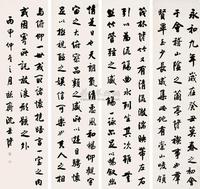 永和九年歲在癸丑暮春之初會
于會稽山陰之蘭亭脩稧事也群
賢畢至少長咸集此地有崇山峻領
茂林脩竹又有清流激湍映帶左右
引以為流觴曲水列坐其次雖無
絲竹管弦之盛一觴一詠亦足以暢敘幽
情是日也天朗氣清惠風和暢仰觀宇
宙之大俯察品類之盛所以遊目騁懷
足以極視聽之娛信可樂也夫人之相
與俯仰一世或取諸懷抱晤言一室之內
或因寄所託放浪形骸之外
丙申仲冬 沈尹默